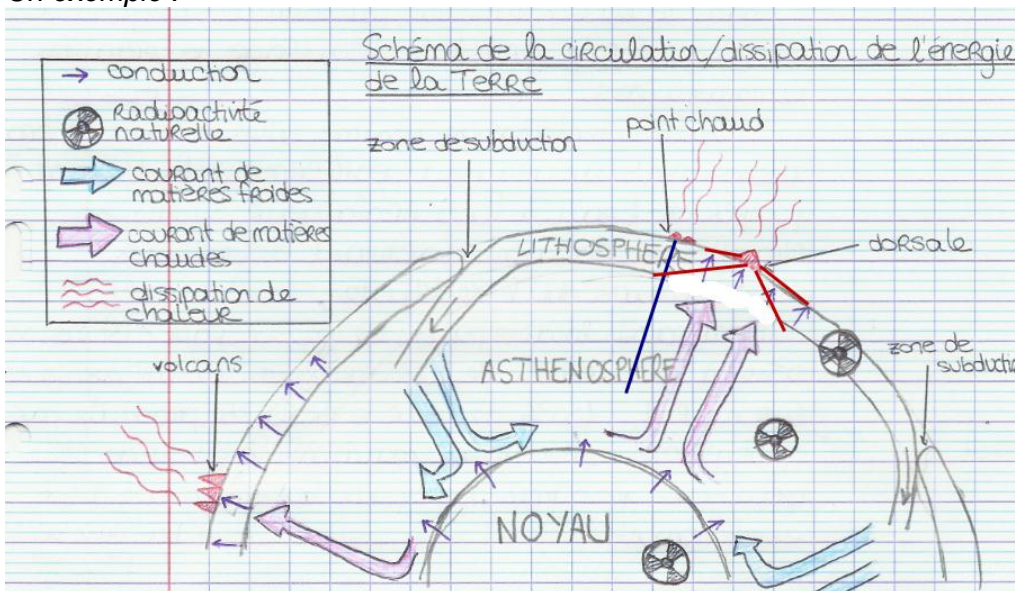 Un exemple :
Schéma de la circulation/dissipation de l'énergie
de la Terre
→ conduction
Radioactivité
naturelle
courant de
matières froides
courant de matières
chaudes
dissipation de
chaleur
zone de subduction
point chaud
LITHOSPHERE
dorsale
volcans
ASTHENOSPHERE
zone de
NOYAU